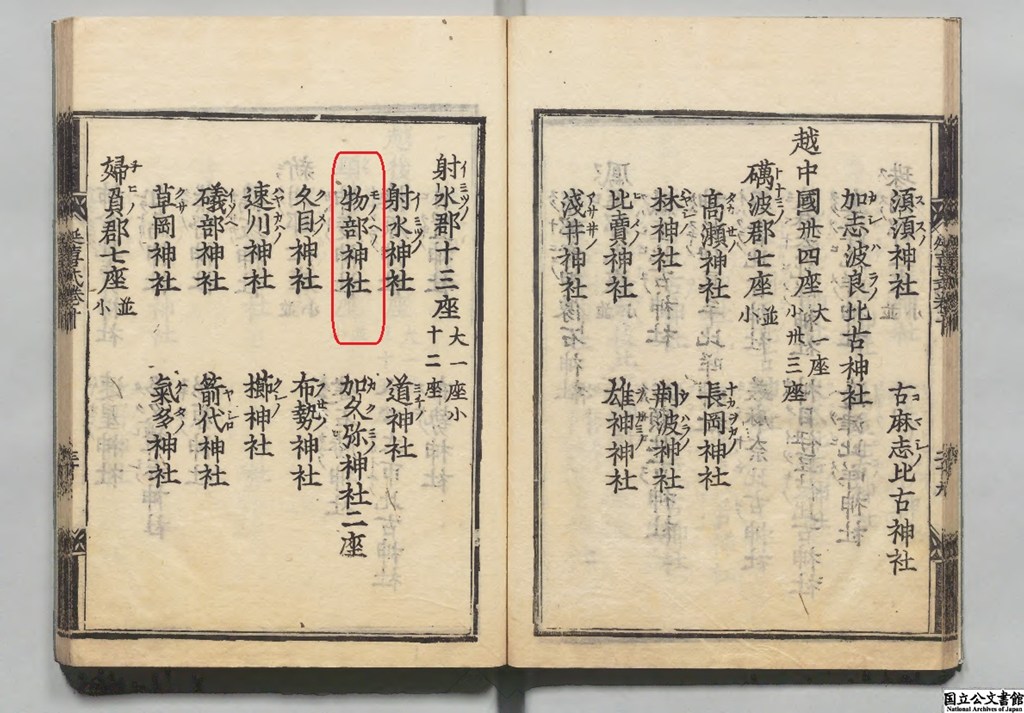 須須神社 古麻志比古神社
加志波良比古神社
越中國卅四座 大一座 小卅三座
礪波郡七座 並小
高瀬神社 長岡神社
林神社 荊波神社
比賣神社 雄神神社
淺井神社
射水郡十三座 大一座小十二座
射水神社 道神社
物部神社 加久弥神社二座
久目神社 布勢神社
速川神社 櫛神社
礒部神社 箭代神社
草岡神社 氣多神社
婦負郡七座 並小
国立公文書館
National Archives of Japan